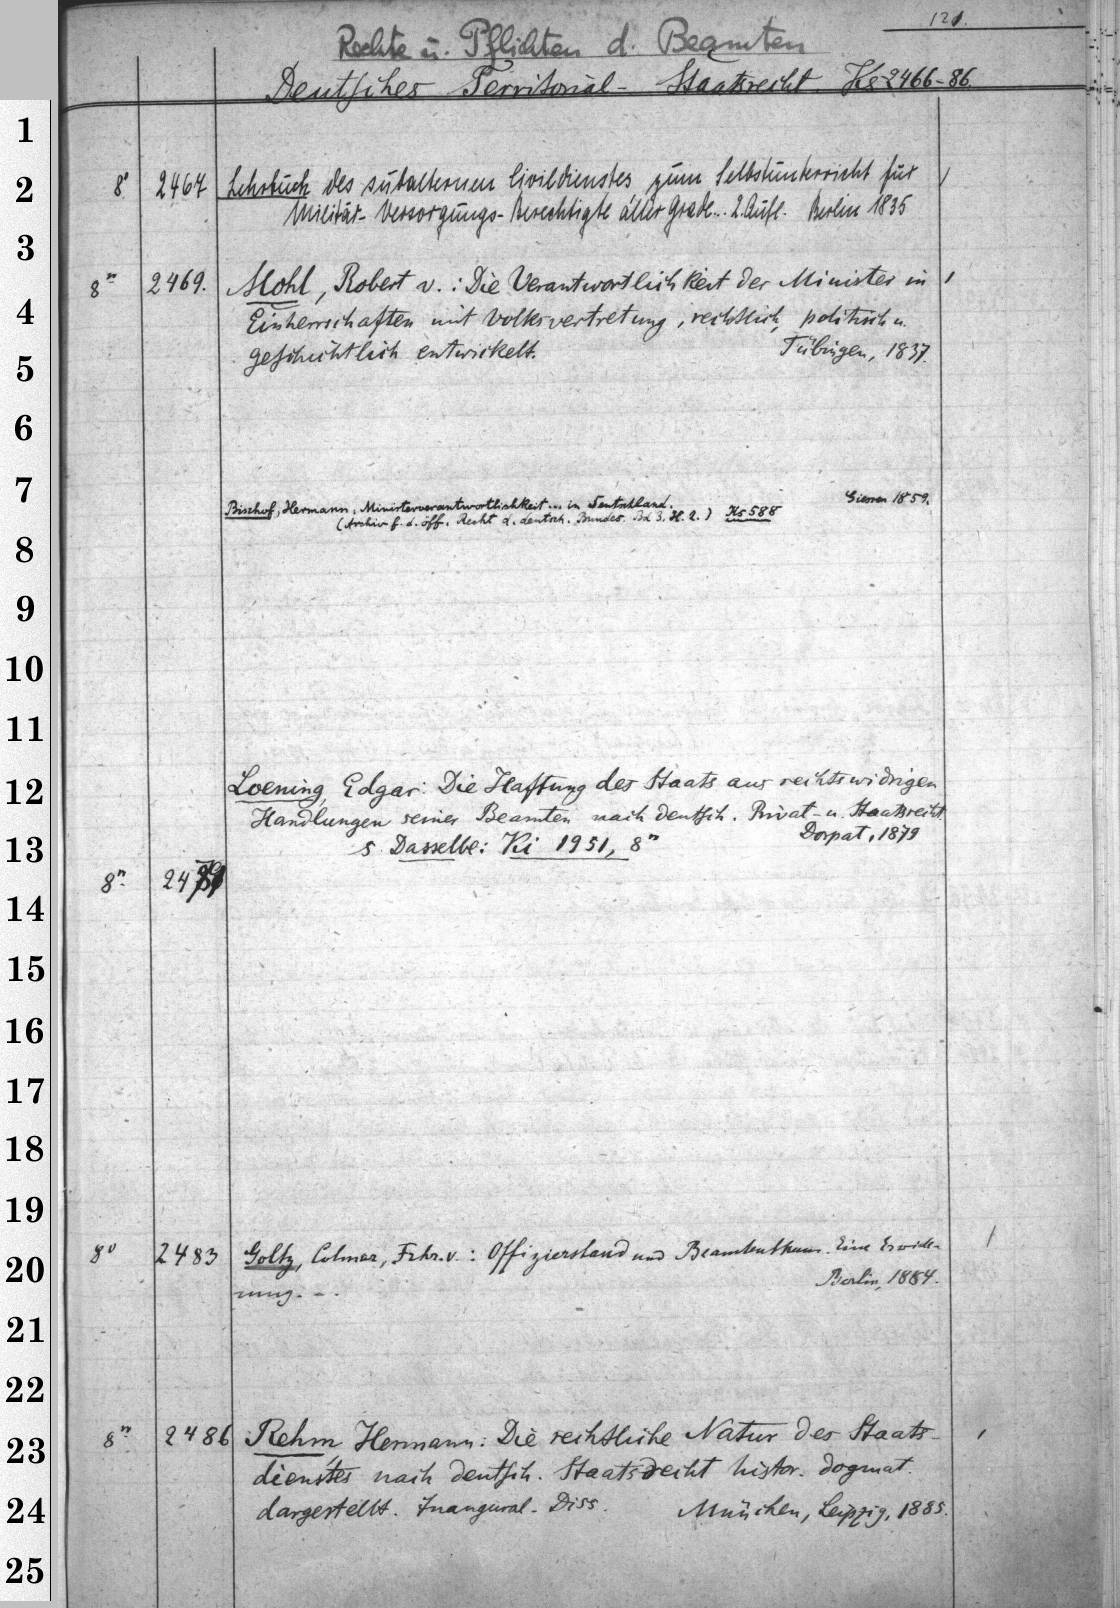 121.
Rechte u. Pflichten d. Beamten
Deutsches Territorial- Staatsrecht. Ks 2466-86.
1
2
3
4
5
6
7
8
9
10
11
12
13
14
15
16
17
18
19
20
21
22
23
24
25
8° 2467 Lehrbuch des subalternen Civildienstes zum Selbstunterricht für
Militär-Versorgungs-Berechtigte aller Grade... 2. Aufl. Berlin 1835
8° 2469. Mohl, Robert v.: Die Verantwortlichkeit der Minister in
Einherrschaften mit Volksvertretung, rechtlich, politisch u.
geschichtlich entwickelt. Tübingen, 1837.
Bischof, Hermann: Ministerverantwortlichkeit... in Deutschland. Giessen 1859.
(Archiv f. d. öff. Recht d. deutsch. Bundes. Bd 3. H. 2.) Ks 588
Loening, Edgar: Die Haftung des Staats aus rechtswidrigen
Handlungen seiner Beamten nach deutsch. Privat- u. Staatsrecht.
Dorpat, 1879
s. Dasselbe: Ki 1951, 8°
8° 24
8° 2483 Goltz, Colmar, Frhr. v.: Offizierstand und Beamtenthum. Eine Erwide-
rung. - . Berlin, 1884.
8° 2486 Rehm Hermann: Die rechtliche Natur des Staats-
dienstes nach deutsch. Staatsrecht histor. dogmat.
dargestellt. Inaugural-Diss. München, Leipzig, 1885.